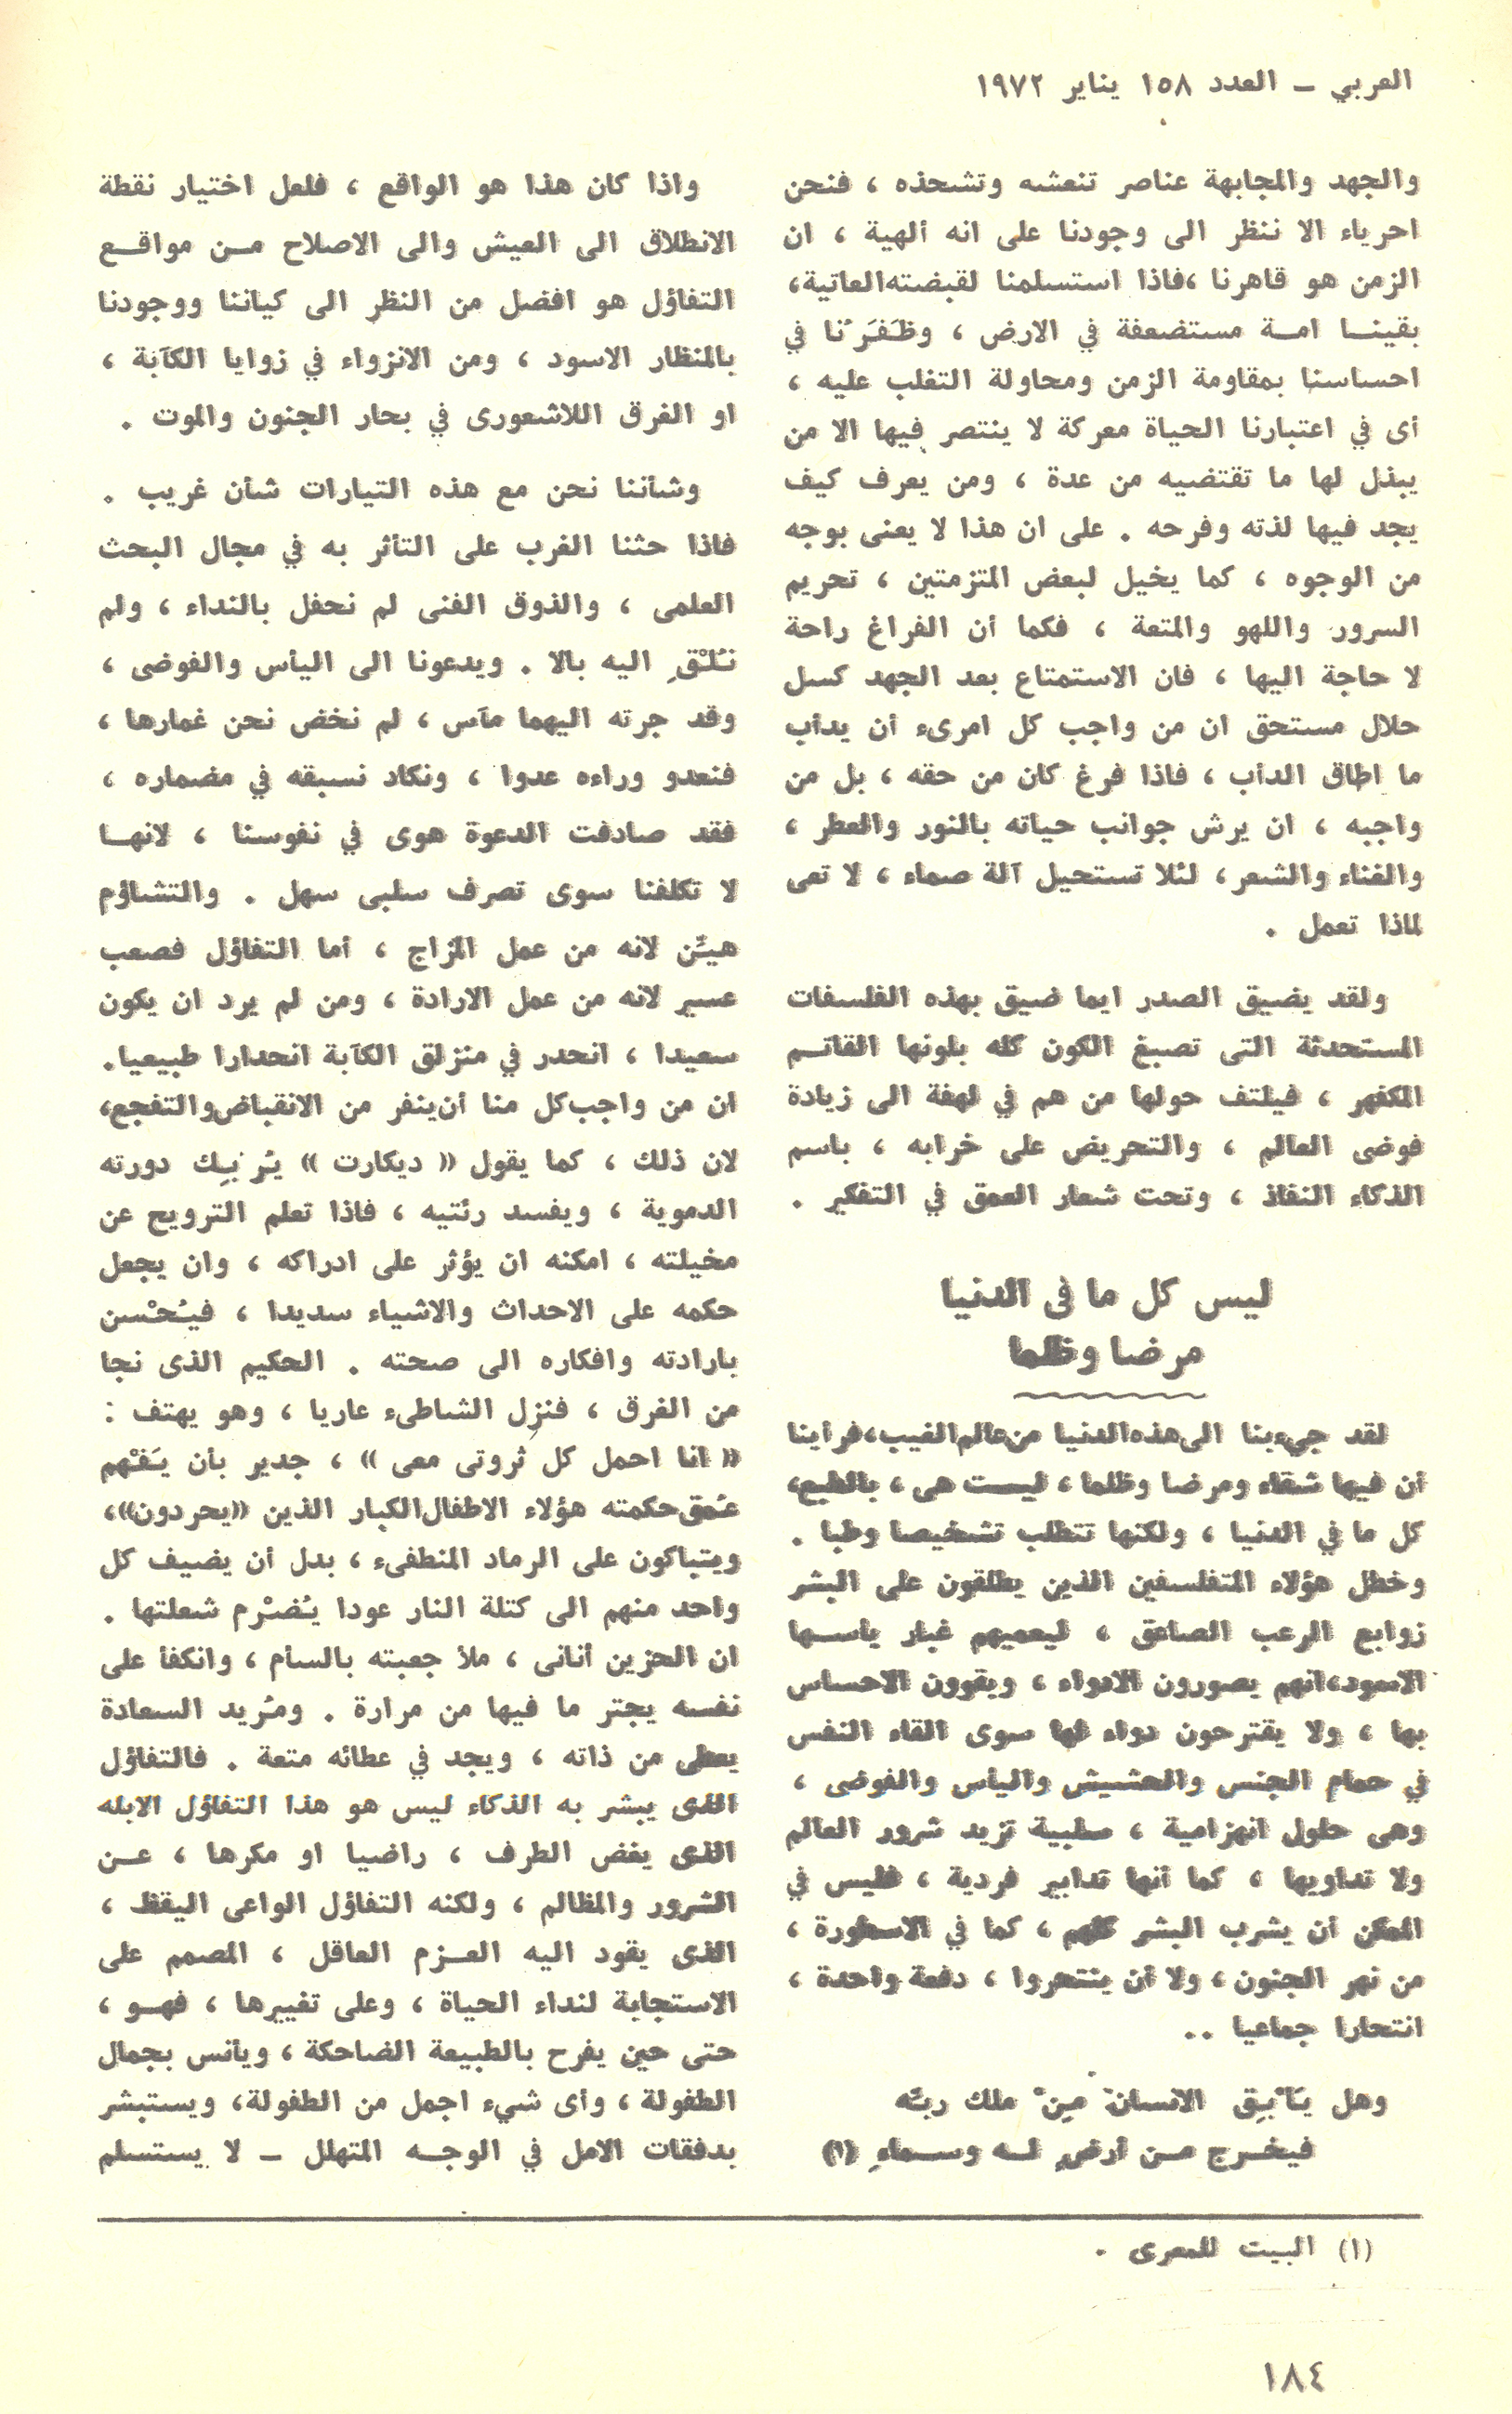 العربي ــ العدد ١٥٨ يناير ١٩٧٢
والجهد والمجابهة عناصر تنعشه وتشحذه ، فنحن
احرياء الا ننظر الى وجودنا على انه ألهية ، ان
الزمن هو قاهرنا ،فاذا استسلمنا لقبضته العاتية،
بقينــا امــة مستضعفة في الارض ، وظَفَرْنا في
احساسنا بمقاومة الزمن ومحاولة التغلب عليه ،
أى في اعتبارنا الحياة معركة لا ينتصر فيها الا من
يبذل لها ما تقتضيه من عدة ، ومن يعرف كيف
يجد فيها لذته وفرحه . على ان هذا لا يعنى بوجه
من الوجوه ، كما يخيل لبعض المتزمتين ، تحريم
السرور واللهو والمتعة ، فكما أن الفراغ راحة
لا حاجة اليها ، فان الاستمتاع بعد الجهد كسل
حلال مستحق ان من واجب كل امرىء أن يدأب
ما اطاق الدأب ، فاذا فرغ كان من حقه ، بل من
واجبه ، ان يرش جوانب حياته بالنور والعطر ،
والغناء والشعر، لئلا تستحيل آلة صماء ، لا تعى
لماذا تعمل .
ولقد يضيق الصدر ايما ضيق بهذه الفلسفات
المستحدثة التى تصبغ الكون كله بلونها القاتــم
المكفهر ، فيلتف حولها من هم في لهفة الى زيادة
فوضى العالم ، والتحريض على خرابه ، باسم
الذكاء النفاذ ، وتحت شعار العمق في التفكير .
ليس كل ما فى الدنيا
مرضا وظلما
لقد جيء بنا الى هذه الدنيا من عالم الغيب، فرأينا
أن فيها شقاء ومرضا وظلما ، ليست هى ، بالطبع،
كل ما في الدنيا ، ولكنها تتطلب تشخيصا وطبا .
وخطل هؤلاء المتفلسفين الذين يطلقون على البشر
زوابع الرعب الصاعق ، ليعميهم غبار يأســها
الاسود، انهم يصورون الادواء ، ويقوون الاحساس
بها ، ولا يقترحون دواء لها سوى القاء النفس
في حمام الجنس والحشيش واليأس والفوضى ،
وهى حلول انهزامية ، سلبية تزيد شرور العالم
ولا تداويها ، كما أنها تدابير فردية ، فليس في
الممكن أن يشرب البشر كلهم ، كما في الاسطورة ،
من نهر الجنون ، ولا أن ينتحروا ، دفعة واحدة ،
انتحارا جماعيا ..
وهل يَأْبِق الانسان مِنْ ملك ربِّه
فيخــرج مــن أرضٍ لــه وســماءِ (١)
واذا كان هذا هو الواقع ، فلعل اختيار نقطة
الانطلاق الى العيش والى الاصلاح مــن مواقــع
التفاؤل هو افضل من النظر الى كياننا ووجودنا
بالمنظار الاسود ، ومن الانزواء في زوايا الكآبة ،
او الغرق اللاشعورى في بحار الجنون والموت .
وشأننا نحن مع هذه التيارات شأن غريب .
فاذا حثنا الغرب على التأثر به في مجال البحث
العلمى ، والذوق الفنى لم نحفل بالنداء ، ولم
نُلْقِ اليه بالا . ويدعونا الى اليأس والفوضى ،
وقد جرته اليهما مآس ، لم نخض نحن غمارها ،
فنعدو وراءه عدوا ، ونكاد نسبقه في مضماره ،
فقد صادفت الدعوة هوى في نفوسنا ، لانهــا
لا تكلفنا سوى تصرف سلبى سهل . والتشاؤم
هيِّن لانه من عمل المزاج ، أما التفاؤل فصعب
عسير لانه من عمل الارادة ، ومن لم يرد ان يكون
سعيدا ، انحدر في منزلق الكآبة انحدارا طبيعيا.
ان من واجب كل منا أن ينفر من الانقباض والتفجع،
لان ذلك ، كما يقول « ديكارت » يُربِك دورته
الدموية ، ويفسد رئتيه ، فاذا تعلم الترويح عن
مخيلته ، امكنه ان يؤثر على ادراكه ، وان يجعل
حكمه على الاحداث والاشياء سديدا ، فيُحْسن
بارادته وافكاره الى صحته . الحكيم الذى نجا
من الغرق ، فنزل الشاطىء عاريا ، وهو يهتف :
« انا احمل كل ثروتى معى » ، جدير بأن يَفْهم
عُمق حكمته هؤلاء الاطفال الكبار الذين «يحردون»،
ويتباكون على الرماد المنطفىء ، بدل أن يضيف كل
واحد منهم الى كتلة النار عودا يُضْرم شعلتها .
ان الحزين أنانى ، ملأ جعبته بالسأم ، وانكفأ على
نفسه يجتر ما فيها من مرارة . ومُريد السعادة
يعطى من ذاته ، ويجد في عطائه متعة . فالتفاؤل
الذى يبشر به الذكاء ليس هو هذا التفاؤل الابله
الذى يغض الطرف ، راضيا او مكرها ، عــن
الشرور والمظالم ، ولكنه التفاؤل الواعى اليقظ ،
الذى يقود اليه العــزم العاقل ، المصمم على
الاستجابة لنداء الحياة ، وعلى تغييرها ، فهــو ،
حتى حين يفرح بالطبيعة الضاحكة ، ويأنس بجمال
الطفولة ، وأى شيء اجمل من الطفولة، ويستبشر
بدفقات الامل في الوجــه المتهلل ــ لا يستسلم
(١) البيت للمعرى .
١٨٤